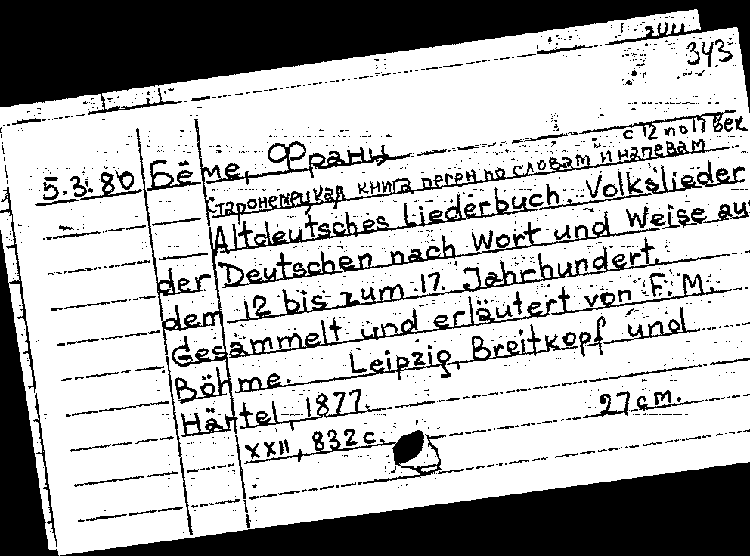 343
5.3.80 Бёме, Франц
с 12 по 17 век
Старонемецкая книга песен по словам и напевам
Altdeutsches Liederbuch. Volkslieder
der Deutschen nach Wort und Weise aus
dem 12 bis zum 17. Jahrhundert.
Gesammelt und erläutert von F. M.
Böhme. Leipzig, Breitkopf und
Härtel, 1877.
27 см.
XXII, 832 с.